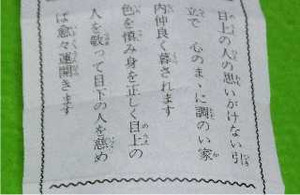 目上の人の思いかけない引
立で　心のまゝに調のい家
内仲良く暮されます
色を慎み身を正しく目上の
人を敬って目下の人を慈め
ば愈々運開きます